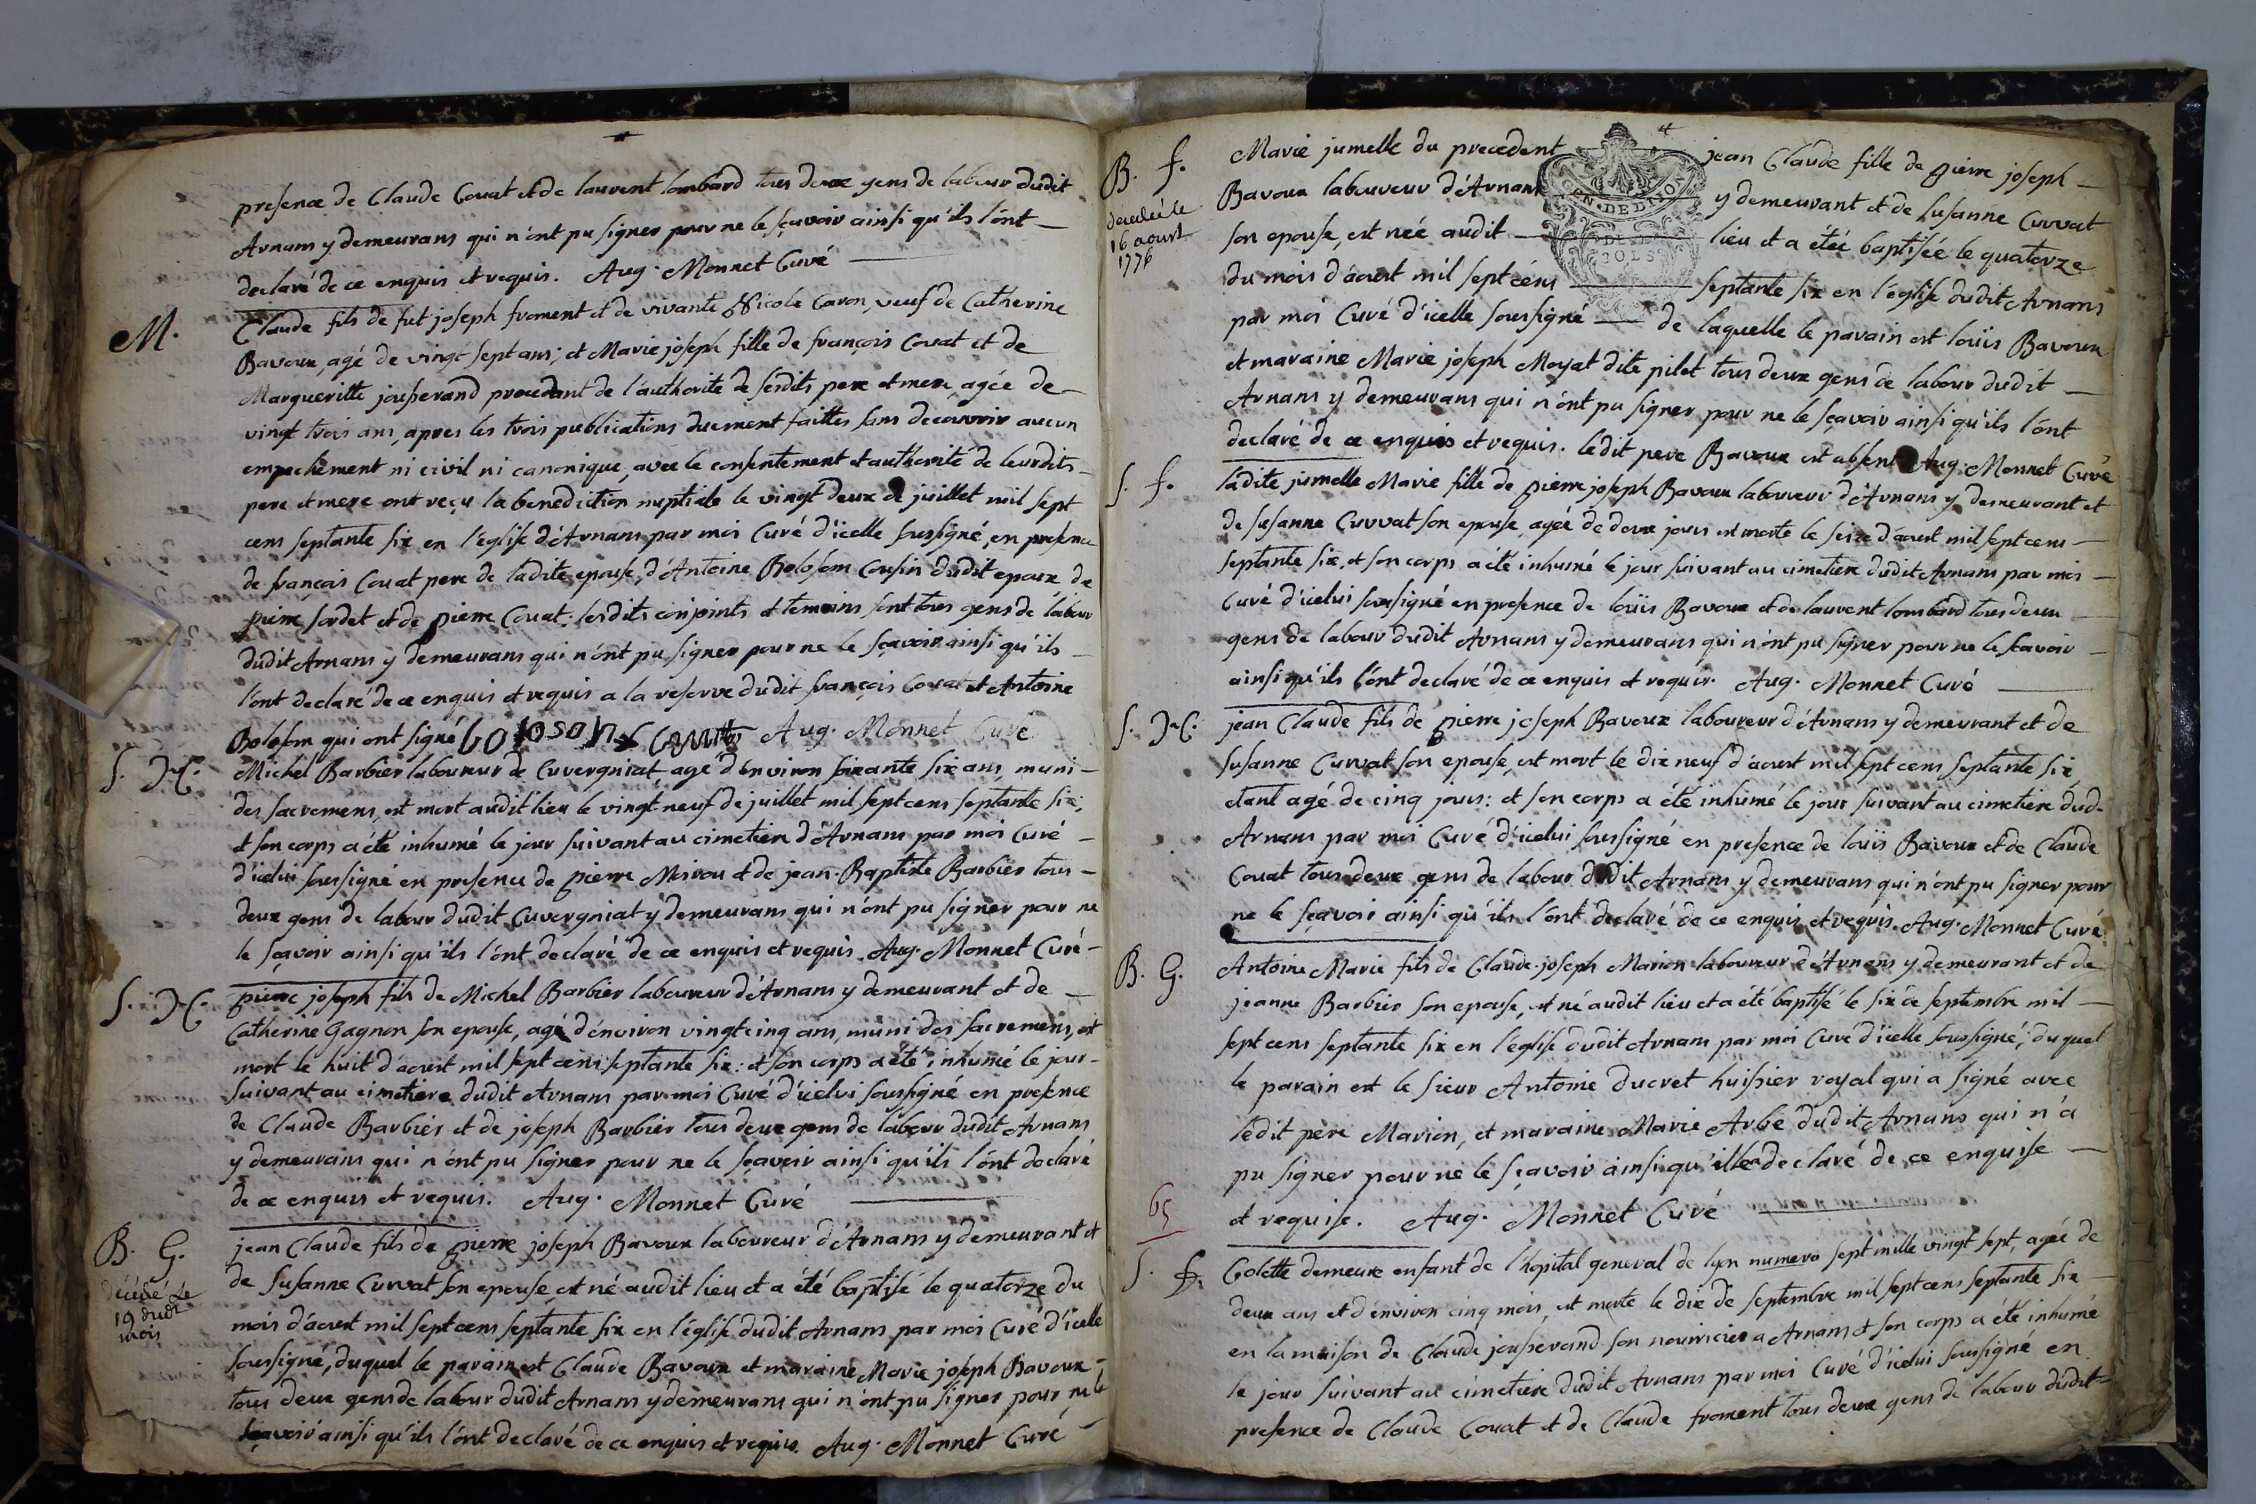 presence de Claude Covat et de laurent lombard tous deux gens de labour dudit
Arnans y demeurans qui n'ont pu signer pour ne le sçavoir ainsi qu'ils l'ont
declaré de ce enquis et requis. Aug. Monnet Curé
M.
Claude fils de fut joseph froment et de vivante Nicole Caron, veuf de Catherine
Bavoux, agé de vingt sept ans; et Marie joseph fille de françois Covat et de
Margueritte jousserand procedant de l'authorité de sesdits pere et mere, agée de
vingt trois ans, apres les trois publications duement faittes sans decouvrir aucun
empechement ni civil ni canonique, avec le consentement et authorité de leurdits
pere et mere ont reçu la benediction nuptiale le vingt deux de juillet mil sept
cens septante six en l'eglise d'Arnans par moi Curé d'icelle soussigné, en presence
de françois Covat pere de ladite epouse, d'Antoine Boloson Cousin dudit epoux de
pierre sordet et de pierre Covat: lesdits conjoints et temoins sont tous gens de labour
dudit Arnans y demeurans qui n'ont pu signer pour ne le sçavoir ainsi qu'ils
l'ont declaré de ce enquis et requis a la reserve dudit françois Covat et Antoine
Boloson qui ont signé boloson Aug. Monnet Curé
S. J-C.
Michel Barbier laboureur de Cuvergniat, agé d'environ soixante six ans, muni
des sacremens, est mort audit lieu le vingt neuf de juillet mil sept cens septante six;
et son corps a été inhumé le jour suivant au cimetiere d'Arnans par moi Curé
d'icelui soussigné en presence de pierre Mirou et de jean-Baptiste Barbier tous
deux gens de labour dudit Cuvergniat y demeurans qui n'ont pu signer pour ne
le sçavoir ainsi qu'ils l'ont declaré de ce enquis et requis. Aug. Monnet Curé
S. J-C.
pierre joseph fils de Michel Barbier laboureur d'Arnans y demeurant et de
Catherine Gagnon son epouse, agé d'environ vingt cinq ans, muni des sacremens, est
mort le huit d'aoust mil sept cens septante six: et son corps a été inhumé le jour
suivant au cimetiere dudit Arnans par moi Curé d'icelui soussigné en presence
de Claude Barbier et de joseph Barbier tous deux gens de labour dudit Arnans
y demeurans qui n'ont pu signer pour ne le sçavoir ainsi qu'ils l'ont declaré
de ce enquis et requis. Aug. Monnet Curé
B. G.
décédé le
19 dudt
mois
jean Claude fils de pierre joseph Bavoux laboureur d'Arnans y demeurant et
de Susanne Curvat son epouse est né audit lieu et a été baptisé le quatorze du
mois d'aoust mil sept cens septante six en l'église dudit Arnans par moi Curé d'icelle
soussigné, duquel le parain est Claude Bavoux et maraine Marie joseph Bavoux
tous deux gens de labour dudit Arnans y demeurans qui n'ont pu signer pour ne le
sçavoir ainsi qu'ils l'ont declaré de ce enquis et requis. Aug. Monnet Curé
B. f.
decedée le
16 aoust
1776
Marie jumelle du precedent jean Claude fille de pierre joseph
Bavoux laboureur d'Arnans y demeurant et de Susanne Curvat
son epouse, est née audit lieu et a étée baptisée le quatorze
du mois d'aoust mil sept cens septante six en l'église dudit Arnans
par moi Curé d'icelle soussigné de laquelle le parain est loüis Bavoux
et maraine Marie joseph Moyat dite pilot tous deux gens de labour dudit
Arnans y demeurans qui n'ont pu signer pour ne le sçavoir ainsi qu'ils l'ont
declaré de ce enquis et requis. ledit pere Bavoux est absent Aug. Monnet Curé
S. f.
ladite jumelle Marie fille de pierre joseph Bavoux laboureur d'Arnans y demeurant et
de susanne Curvat son epouse, agée de deux jours est morte le seize d'aoust mil sept cens
septante six, et son corps a été inhumé le jour suivant au cimetiere dudit Arnans par moi
Curé d'icelui soussigné en presence de loüis Bavoux et de laurent lombard tous deux
gens de labour dudit Arnans y demeurans qui n'ont pu signer pour ne le scavoir
ainsi qu'ils l'ont declaré de ce enquis et requis. Aug. Monnet Curé
S. J-C.
jean Claude fils de pierre joseph Bavoux laboureur d'Arnans y demeurant et de
susanne Curvat son epouse, est mort le dix neuf d'aoust mil sept cens septante six
etant agé de cinq jours: et son corps a été inhumé le jour suivant au cimetiere dud.
Arnans par moi Curé d'icelui soussigné en presence de loüis Bavoux et de Claude
Covat tous deux gens de labour dudit Arnans y demeurans qui n'ont pu signer pour
ne le sçavoir ainsi qu'ils l'ont declaré de ce enquis et requis. Aug. Monnet Curé
B. G.
Antoine Marie fils de Claude-joseph Marion laboureur d'Arnans y demeurant et de
jeanne Barbier son epouse, est né audit lieu et a été baptisé le six de septembre mil
sept cens septante six en l'église dudit Arnans par moi Curé d'icelle soussigné; duquel
le parain est le sieur Antoine Ducret huissier royal qui a signé avec
ledit pere Marion, et maraine Marie Arbe dudit Arnans qui n'a
pu signer pour ne le sçavoir ainsi qu'elle a declaré de ce enquise
et requise. Aug. Monnet Curé
65
S. f.
Colette demeure enfant de l'hopital general de lyon numero sept mille vingt sept, agée de
deux ans et d'environ cinq mois, est morte le dix de septembre mil sept cens septante six
en la maison de Claude jousserand son nourricier a Arnans et son corps a été inhumé
le jour suivant au cimetiere dudit Arnans par moi Curé d'icelui soussigné en
presence de Claude Covat et de Claude froment tous deux gens de labour dudit